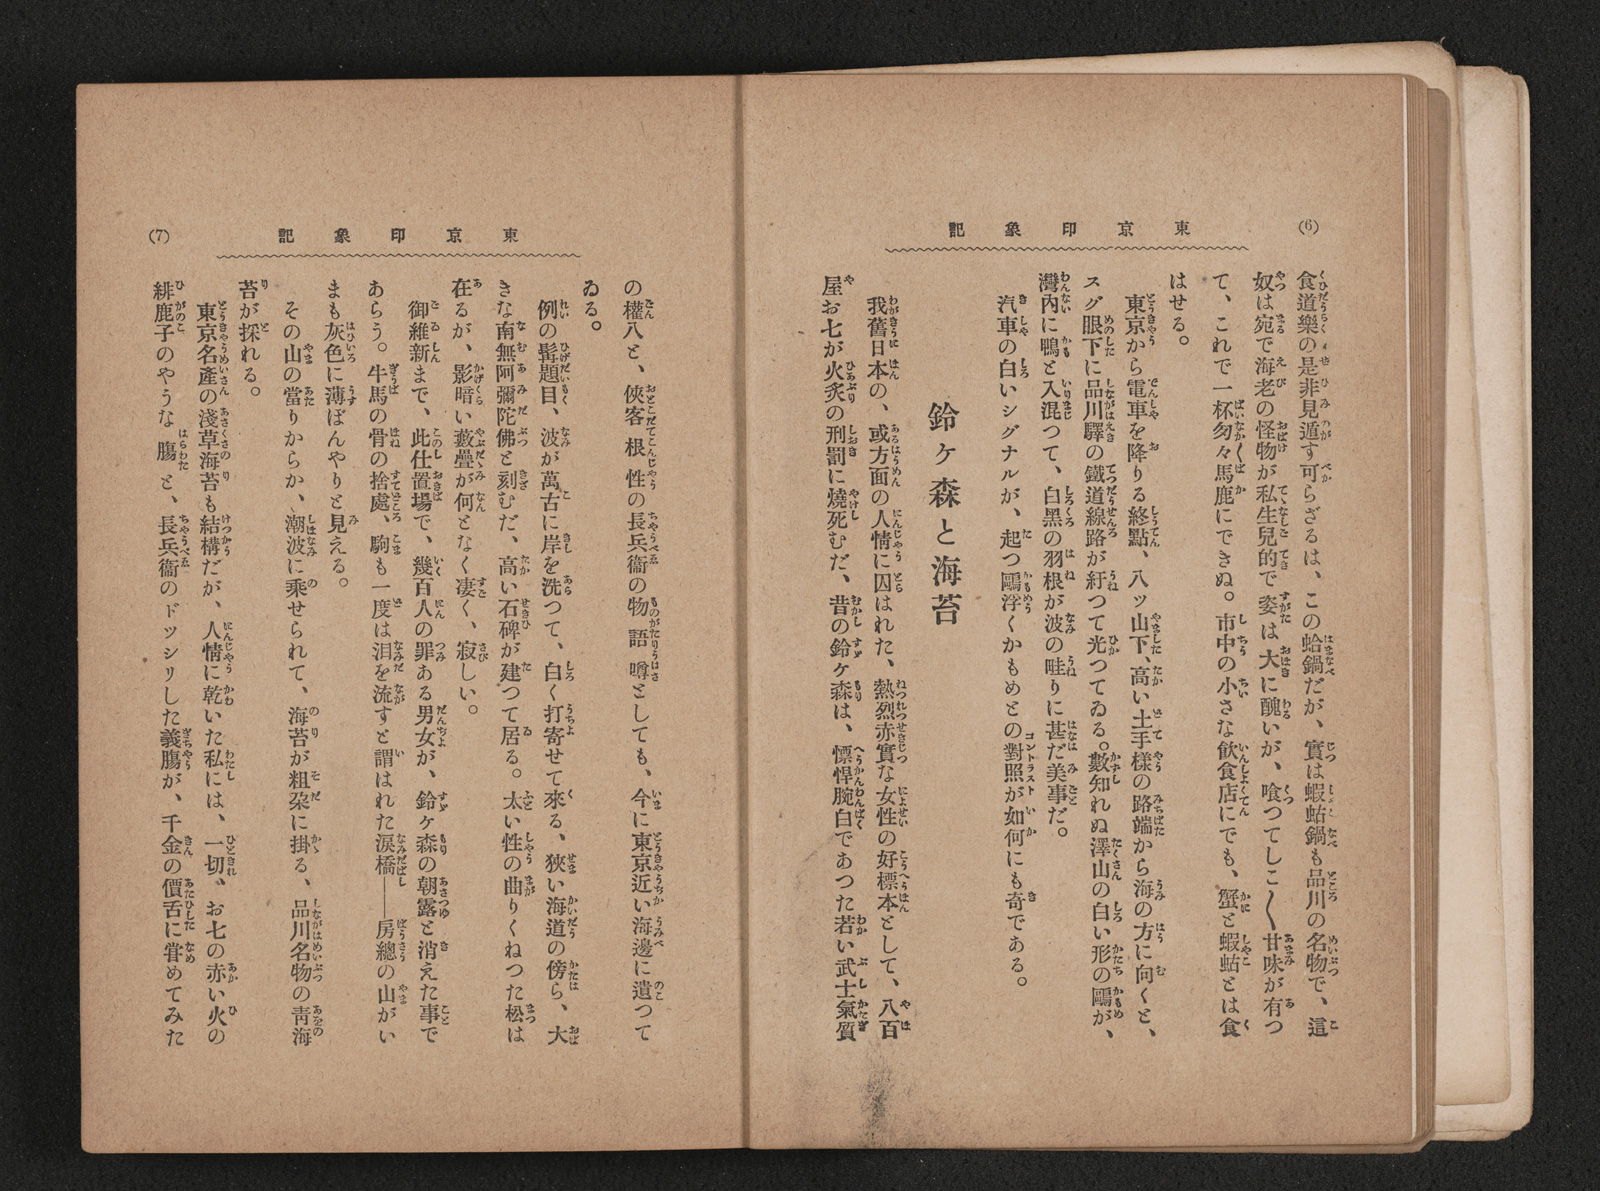 (6)
東京印象記
食道樂の是非見遁す可らざるは、この蛤鍋だが、實は蝦蛄鍋も品川の名物で、這
奴は宛で海老の怪物が私生兒的で姿は大に醜いが、喰つてしこ〳〵甘味が有つ
て、これで一杯匆々馬鹿にできぬ。市中の小さな飮食店にでも、蟹と蝦蛄とは食
はせる。
東京から電車を降りる終點、八ツ山下、高い土手樣の路端から海の方に向くと、
スグ眼下に品川驛の鐵道線路が紆つて光つてゐる。數知れぬ澤山の白い形の鷗が、
灣內に鴨と入混つて、白黑の羽根が波の畦りに甚だ美事だ。
汽車の白いシグナルが、起つ鷗浮くかもめとの對照が如何にも奇である。
鈴ヶ森と海苔
我舊日本の、或方面の人情に囚はれた、熱烈赤實な女性の好標本として、八百
屋お七が火炙の刑罰に燒死むだ、昔の鈴ヶ森は、慓悍腕白であつた若い武士氣質
(7)
東京印象記
の權八と、俠客根性の長兵衞の物語噂としても、今に東京近い海邊に遺つて
ゐる。
例の髯題目、波が萬古に岸を洗つて、白く打寄せて來る、狹い海道の傍ら、大
きな南無阿彌陀佛と刻むだ、高い石碑が建つて居る。太い性の曲りくねつた松は
在るが、影暗い藪疊が何となく凄く、寂しい。
御維新まで、此仕置場で、幾百人の罪ある男女が、鈴ヶ森の朝露と消えた事で
あらう。牛馬の骨の捨處、駒も一度は泪を流すと謂はれた淚橋――房總の山がい
まも灰色に薄ぼんやりと見える。
その山の當りからか、潮波に乘せられて、海苔が粗朶に掛る、品川名物の靑海
苔が採れる。
東京名產の淺草海苔も結構だが、人情に乾いた私には、一切〻お七の赤い火の
緋鹿子のやうな腸と、長兵衞のドッシリした義膓が、千金の價舌に甞めてみた